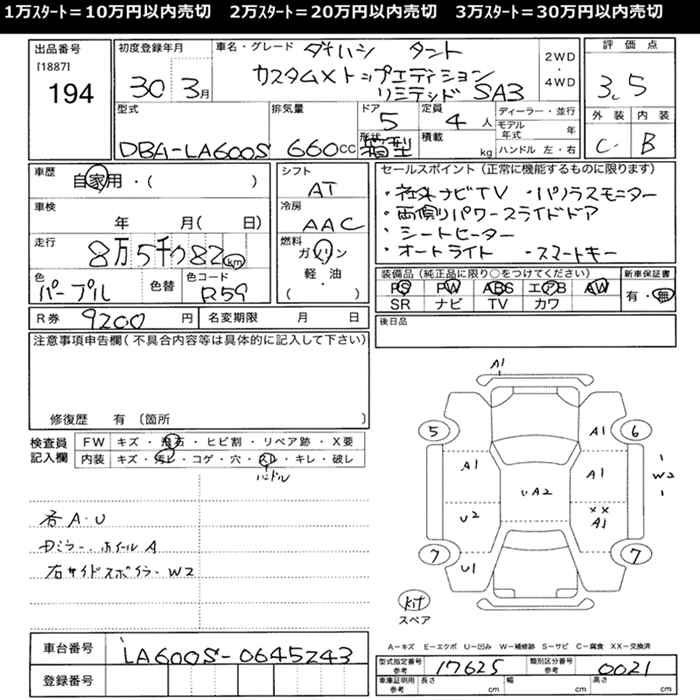 1万ｽﾀｰﾄ＝10万円以内売切　2万ｽﾀｰﾄ＝20万円以内売切　3万ｽﾀｰﾄ＝30万円以内売切
出品番号
[1887]
194
初度登録年月
30 3月
車名・グレード ダイハツ タント
カスタムXトップエディション
リミテッド SA3
2WD
・
4WD
評価点
3.5
外装 内装
C B
型式
DBA-LA600S
排気量
660cc
ドア
5
形状
箱型
定員
4人
積載
kg
ディーラー・並行
モデル年式 年
ハンドル 左・右
車歴
自家用・( )
車検
年 月( 日)
走行
8万5千082km
色
パープル
色替
色コード
R59
シフト
AT
冷房
AAC
燃料
ガソリン
軽・油
( )
セールスポイント(正常に機能するものに限ります)
・社外ナビTV ・パノラマモニター
・両側パワースライドドア
・シートヒーター
・オートライト ・スマートキー
装備品(純正品に限り○をつけてください)
PS PW ABS エアB AW
SR ナビ TV カワ
新車保証書
有・無
後日品
R券 9200円
名変期限 月 日
注意事項申告欄(不具合内容等は具体的に記入して下さい)
修復歴 有 〔箇所 〕
検査員
記入欄
FW キズ・飛石・ヒビ割・リペア跡・X要
内装 キズ・汚レ・コゲ・穴・スレ・キレ・破レ
ハンドル
各A・U
Dミラー・ホイールA
右サイドスポイラーW2
A1
5
6
A1
A1
A1
W2
U A2
U2
XX
A1
7
7
U1
kit
スペア
車台番号 LA600S-0645243
登録番号
A－キズ E－エクボ U－凹み W－補修跡 S－サビ C－腐食 XX－交換済
型式指定番号
参考
17625
類別区分番号
参考
0021
車庫証明用
参考
長さ cm
幅 cm
高さ cm